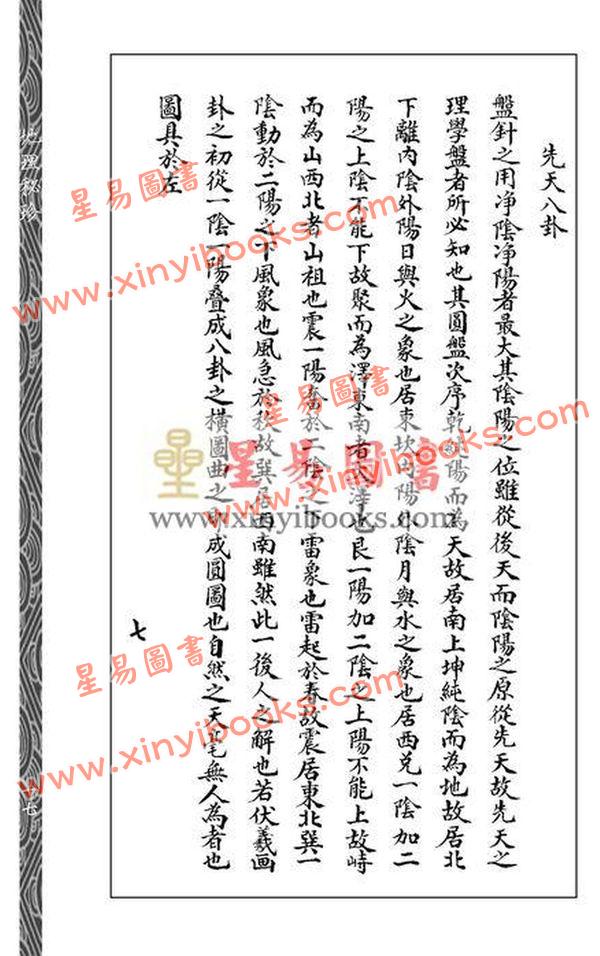 先天八卦
盤針之用净陰净陽者最大其陰陽之位雖從後天而陰陽之原從先天故先天之
理學盤者所必知也其圓盤次序乾純陽而為天故居南上坤純陰而為地故居北
下離內陰外陽日與火之象也居東坎內陽外陰月與水之象也居西兌一陰加二
陽之上陰不能下故聚而為澤東南者 澤也艮一陽加二陰之上陽不能上故峙
而為山西北者山祖也震一陽奮於二陰之下雷象也雷起於春故震居東北巽一
陰動於二陽之下風象也風急於秋故巽居西南雖然此一後人之解也若伏羲画
卦之初從一陰一陽叠成八卦之橫圖曲之 成圓圖也自然之天 無人為者也
圖具於左
七
地理秘珍
七
星易圖書
www.xinyibooks.com
星易圖書
www.xinyibooks.com
星易圖書
www.xinyibooks.com
星易圖書
www.xinyibooks.com